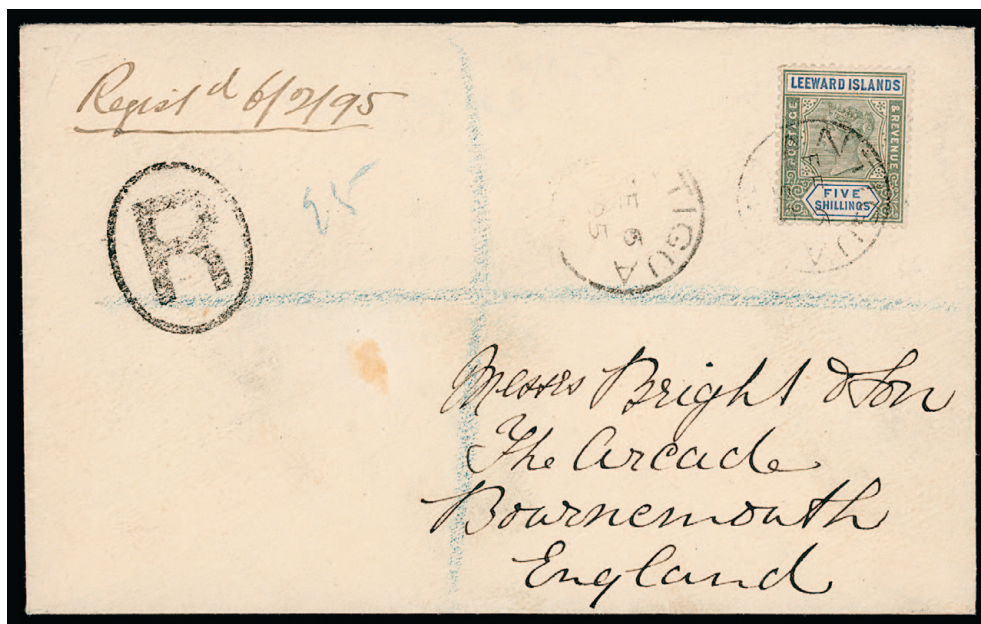 Regist d 6/2/95
LEEWARD ISLANDS
POSTAGE
& REVENUE
FIVE
SHILLINGS
R
25
TIGUA
Messrs Bright & Son
The Arcade
Bournemouth
England